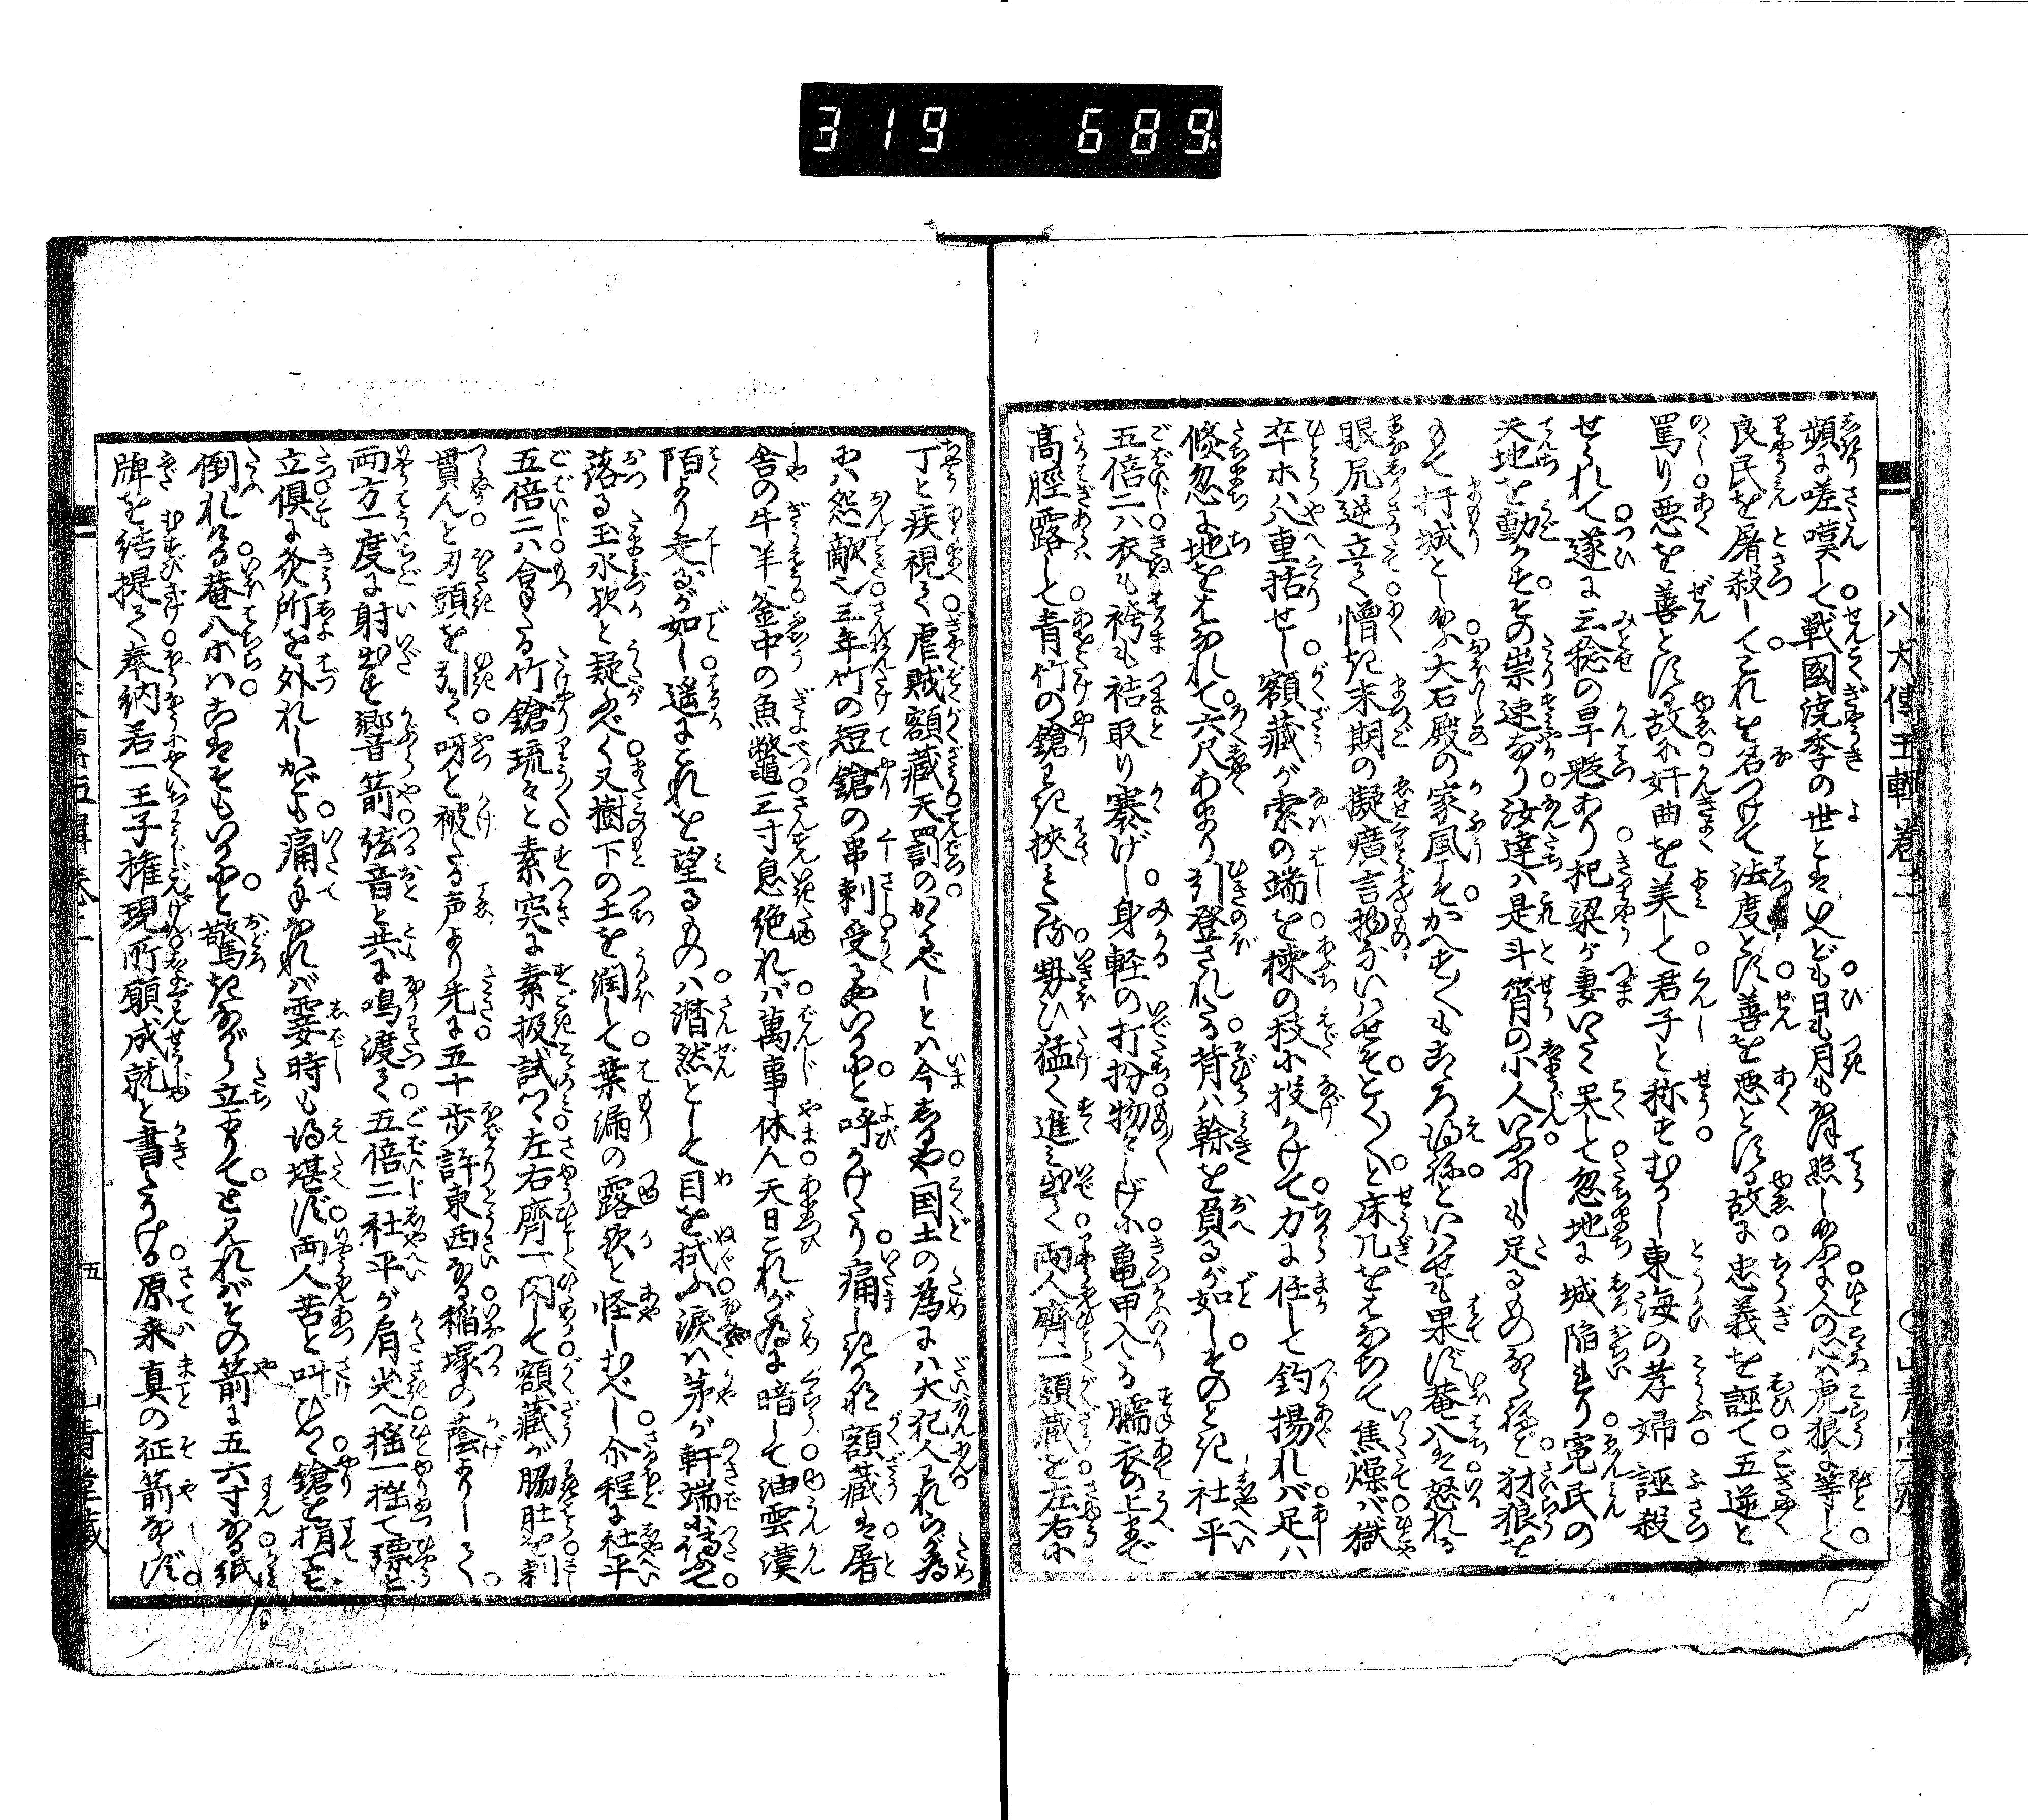 319 689
八犬傳五輯巻二
頻に嗟嘆して戦國澆季の世とはいへども日も月もなほ照し給ふに人の心は虎狼に等しく
良民を屠殺してこれを名つけて法度とす善を悪とする故に忠義を誣て五逆と
罵り悪を善とする故に奸曲を美して君子と称すむかし東海の孝婦誣殺
せられて遂に三稔の旱魃あり杞梁が妻いたく哭して忽地に城陥れり寃民の
天地を動かすその祟速なり汝達は是斗筲の小人いふにしも足るものならねど豺狼を
もて扞城とし給ふ大石殿の家風そかへす〳〵もこゝろ得ねといはせも果ず菴八は怒れる
眼尻逆立て憎き末期の癡廣言物ないはせそとく〳〵と床几をはなちて焦燥ば獄
卒ホハ八重括せし額蔵が索の端を楝の枝に投かけて力に任して釣揚れば足は
倏忽に地をはなれて六尺あまり引登されたる背は幹を負るが如しそのとき社平
五倍二ハ衣も袴も祮取り褰げし身軽の打扮物々しげに亀甲入たる臑衣の上まで
高脛露して青竹の鎗わき挾みたる勢ひ猛く進み出て両人齊一額蔵を左右に
丁と疾視て虐賊額蔵天罰のがれがたしとは今しるや国土の為には大犯人われらが為
には怨敵也三年竹の短鎗の串刺受るやいかにと呼かけたり痛しきかな額蔵は屠
舎の牛羊釜中の魚鼈三寸息絶れば萬事休ん天日これが為に暗して油雲漠
陌より走るが如し遥にこれを望るものは潸然として目を拭ふ涙は茅が軒端に傳ふて
落る玉水歟と疑ふべく又樹下の土を潤して葉漏の露歟と怪しむべし尒程に社平
五倍二ハ合たる竹鎗琉々と素突に素扱試つ左右齊一閃して額蔵が脇肚を刺
貫んと刃頭を引て呀と被たる声より先に五十歩許東西なる稲塚の蔭よりして
両方一度に射出す響箭弦音と共に鳴渡て五倍二社平が肩尖へ揺一揺て𥻘と
立倶に灸所を外れしかども痛手なれば霎時も得堪ず両人苦と叫びつゝ鎗を捐て
倒れたる菴八ホハこはそもいかにと驚きながら立よりてと見ればその箭に五六寸なる紙
牌を結提て奉納若一王子権現所願成就と書たりける原来真の征箭ならず
五
山青堂藏